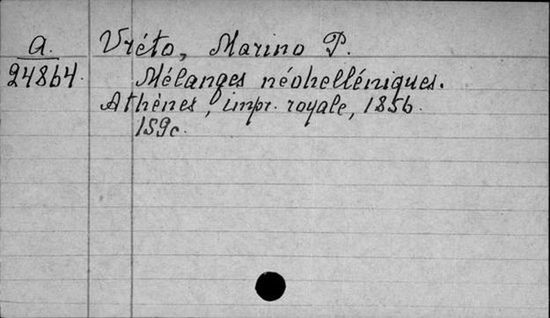 A.
24864.
Vréto, Marino P.
Mélanges néohelléniques.
Athènes, impr. royale, 1856.
159c.